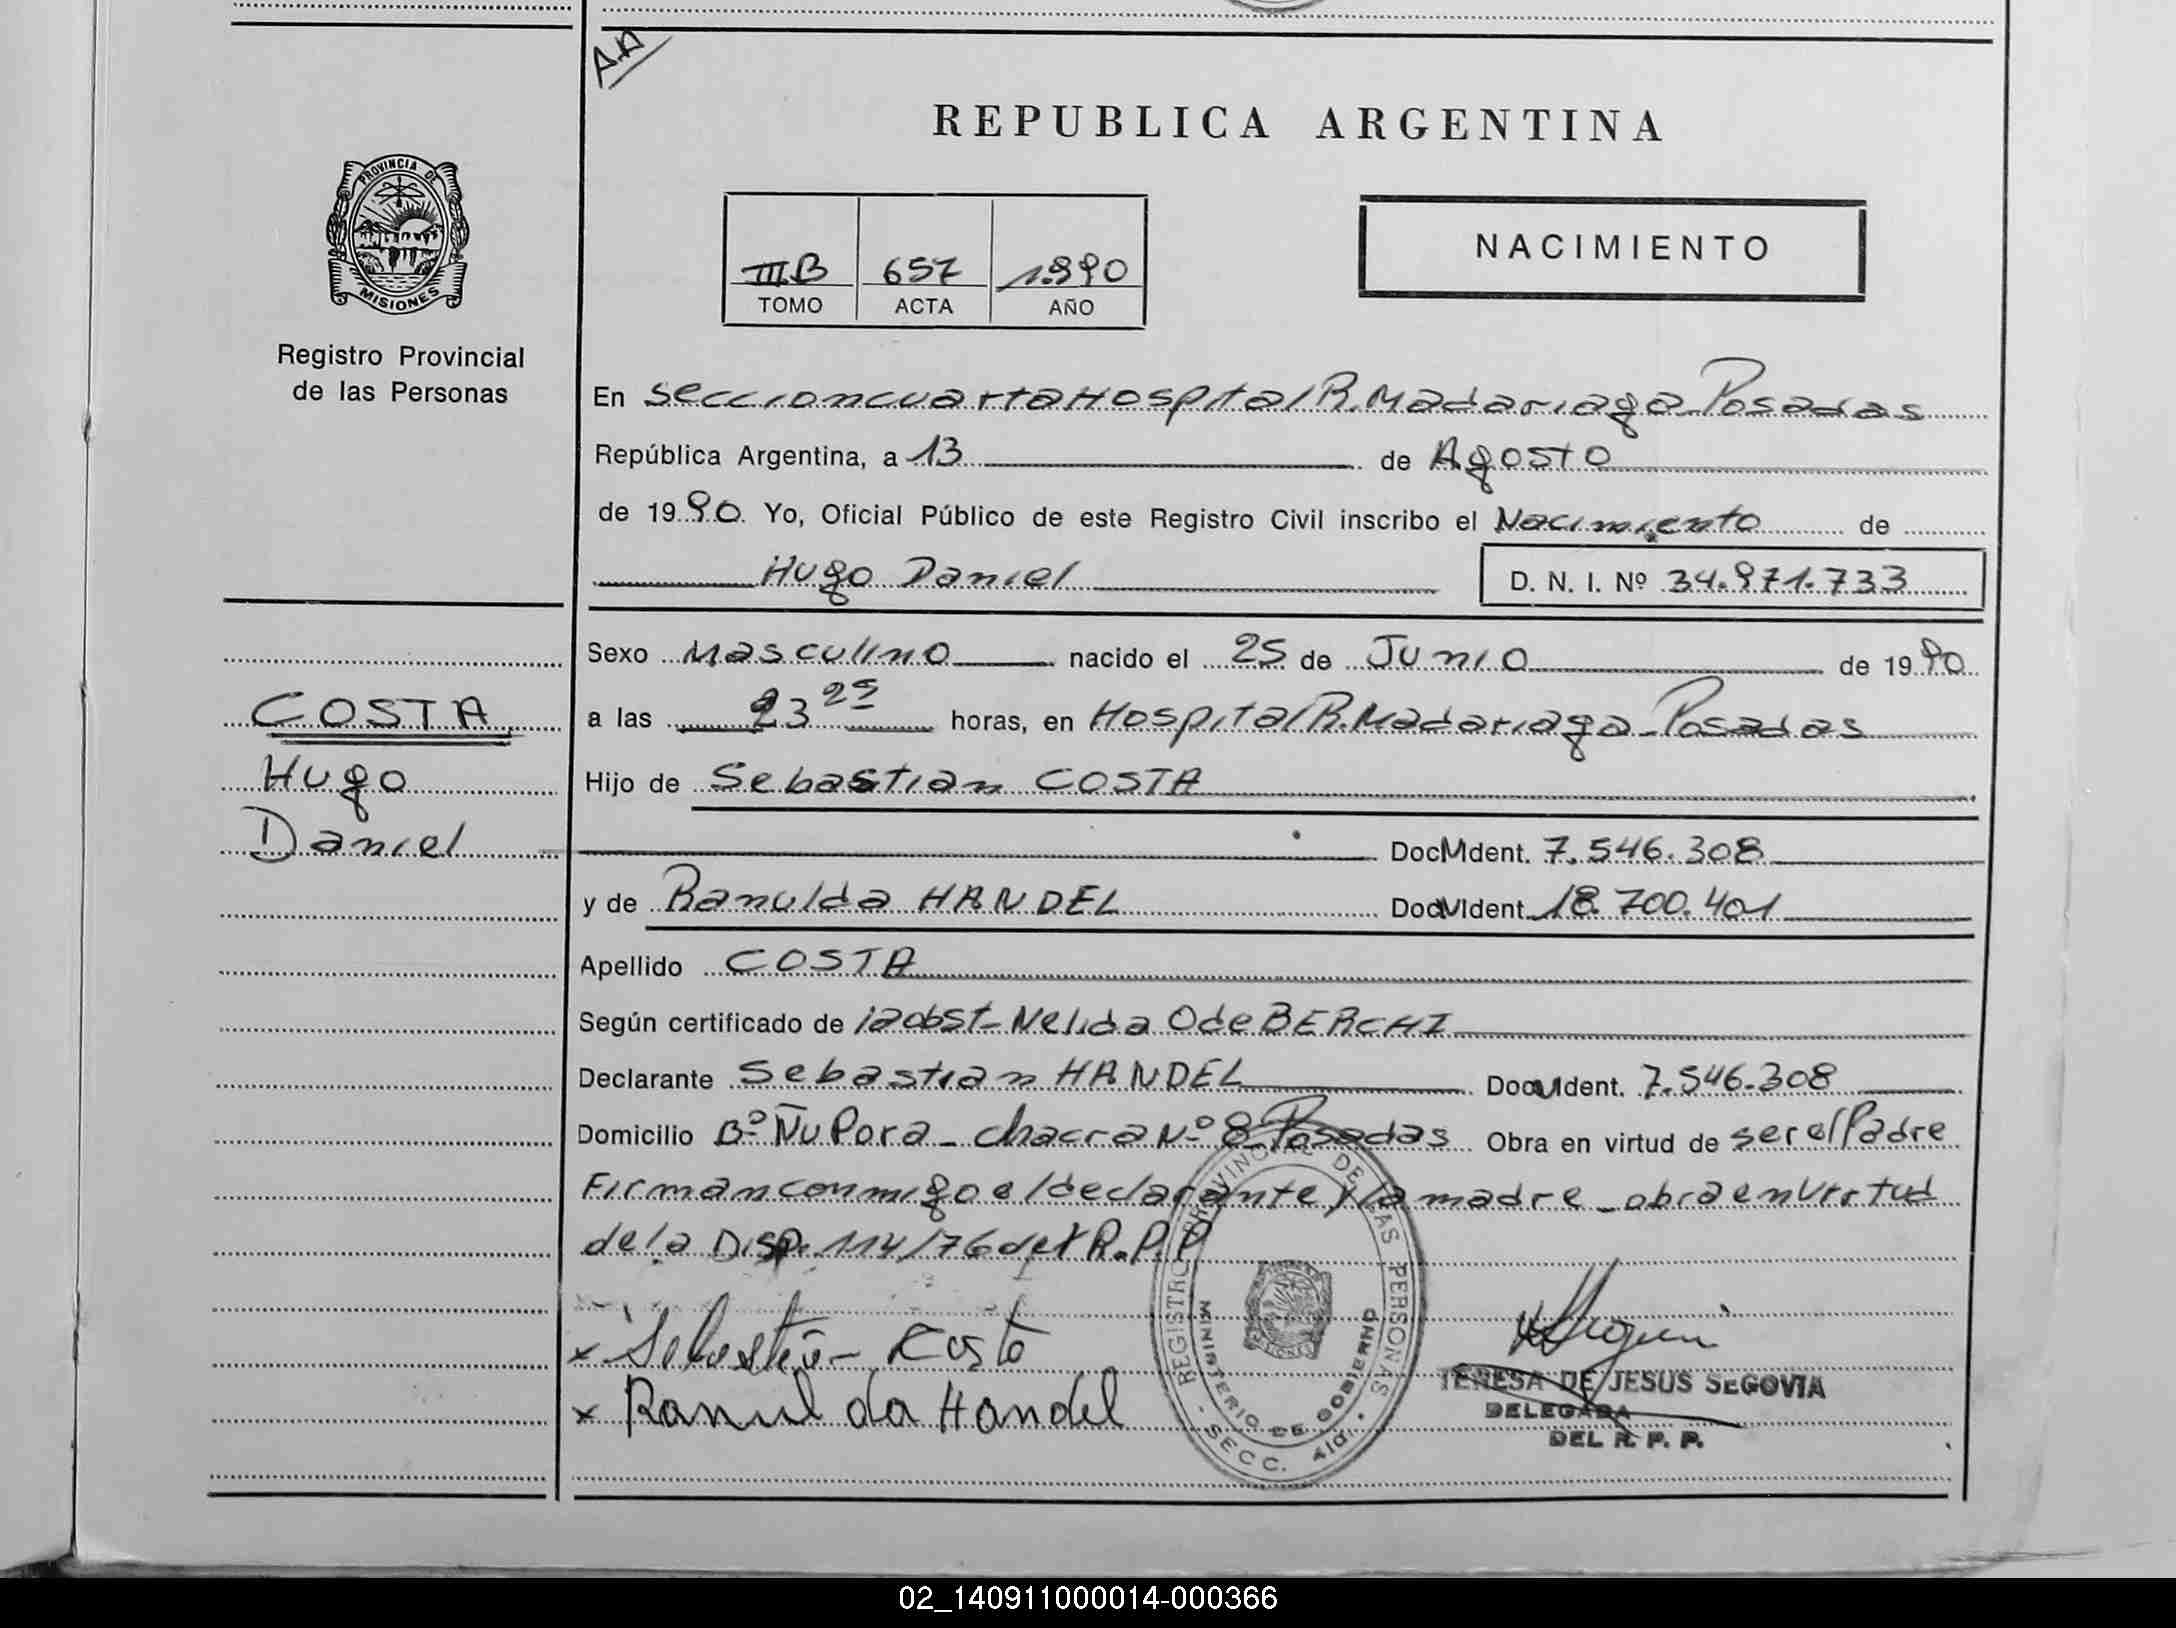 A.A
REPUBLICA ARGENTINA
PROVINCIA DE
MISIONES
Registro Provincial
de las Personas
III.B 657 1.990
TOMO ACTA AÑO
NACIMIENTO
En seccion cuarta Hospital R. Madariaga - Posadas
República Argentina, a 13 de Agosto
de 1990. Yo, Oficial Público de este Registro Civil inscribo el Nacimiento de
Hugo Daniel D. N. I. Nº 34.971.733
Sexo Masculino nacido el 25 de Junio de 1990
COSTA
a las 23 25 horas, en Hospital R. Madariaga - Posadas
Hugo
Hijo de Sebastian COSTA
Daniel
Doc M Ident. 7.546.308
y de Ranulda HANDEL Doc M Ident. 18.700.401
Apellido COSTA
Según certificado de la obst - Nelida O de BERCHI
Declarante Sebastian HANDEL Doc M Ident. 7.546.308
Domicilio Bº Ñu Pora - chacra Nº 8 - Posadas Obra en virtud de ser el Padre
Firman conmigo el declarante y la madre - obra en virtud
de la Disp. 114/76 del R.P.P
Sebastián Costa
x Ranulda Handel
REGISTRO PROVINCIAL DE LAS PERSONAS
MINISTERIO DE GOBIERNO
- SECC. 4ta. -
TERESA DE JESUS SEGOVIA
DELEGADA
DEL R. P. P.
02_140911000014-000366